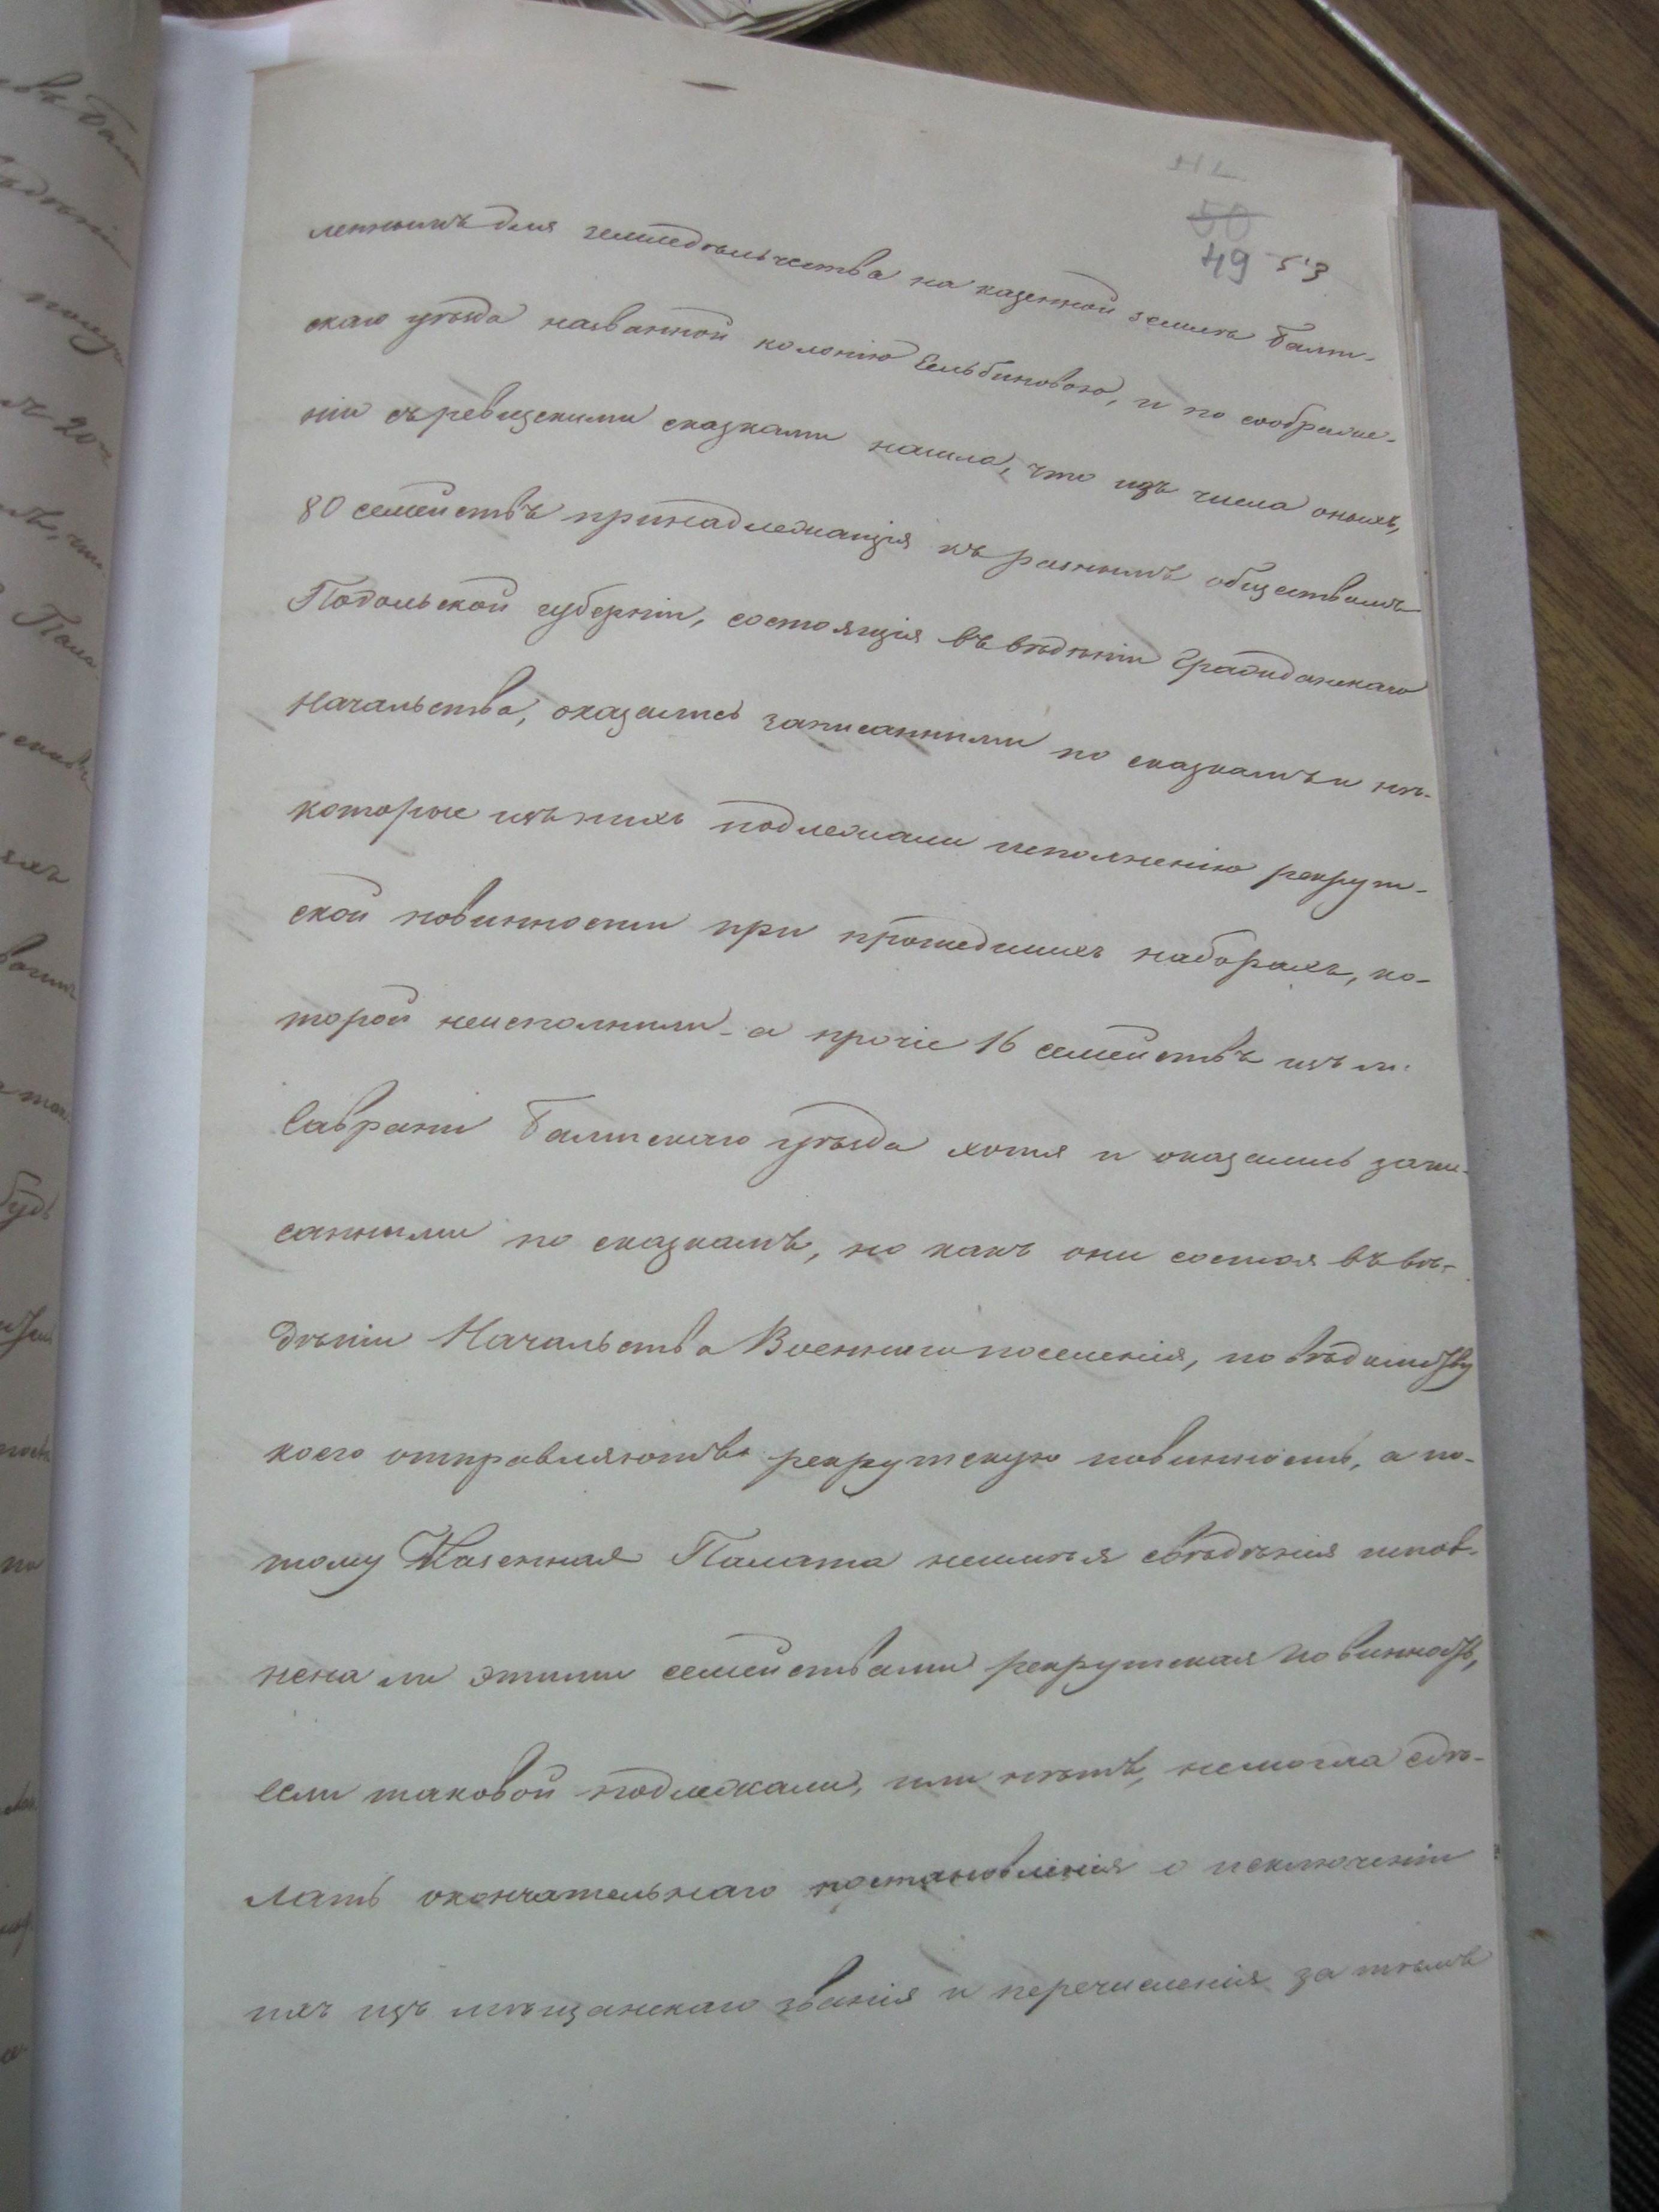 50
49 53
леннымъ для земледѣльчества на казенной землѣ Балт-
скаго уѣзда названной колонію Сельбиновою, и по соображе-
ніи съ ревизскими сказками нашла, что изъ числа оныхъ,
80 семействъ принадлежащія къ разнымъ обществамъ
Подольской губерніи, состоящія въ вѣдѣніи Гражданскаго
Начальства, оказались записанными по сказкамъ и нѣ-
которые изъ нихъ подлежали исполненію рекрут-
ской повинности при прошедшихъ наборахъ, ко-
торой неисполнили - а прочіе 16 семействъ изъ м.
Саврани Балтскаго уѣзда хотя и оказались запи-
санными по сказкамъ, но какъ они состоя въ вѣ-
дѣніи Начальства Военнаго поселенія, по вѣдомству
коего отправляютъ рекрутскую повинность, а по-
тому Казенная Палата неимѣя свѣдѣнія испол-
нена ли этими семействами рекрутская повинность,
если таковой подлежали, или нѣтъ, немогла сдѣ-
лать окончательнаго постановленія о исключеніи
ихъ изъ мѣщанскаго званія и перечисленія за тѣмъ